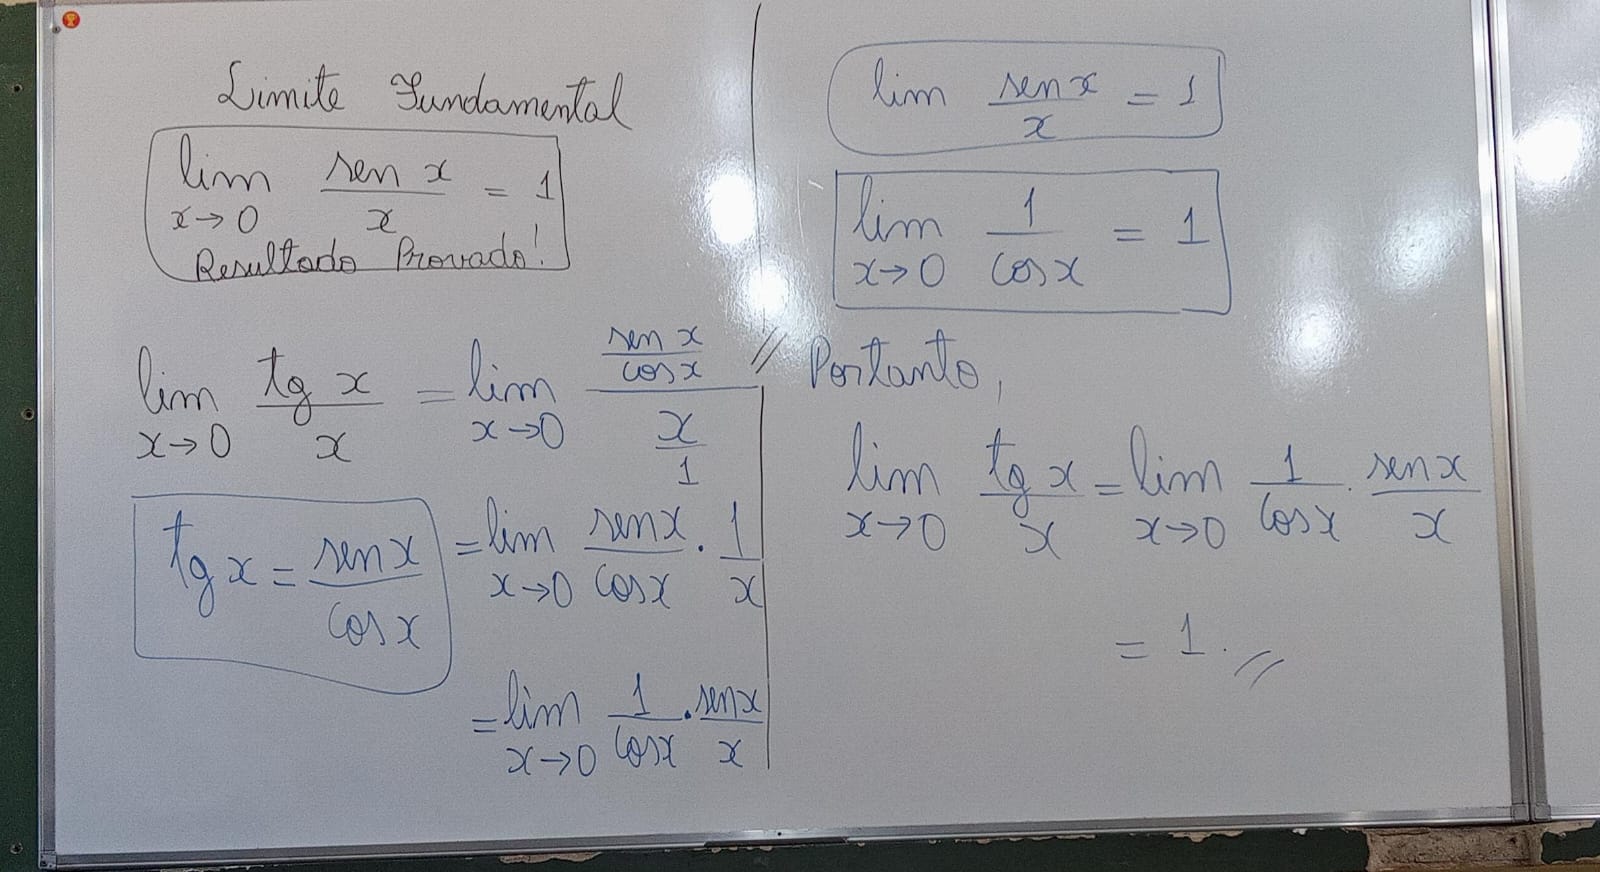 Limite Fundamental
lim sen x / x = 1
x→0
Resultado Provado!
lim tg x / x = lim (sen x / cos x) / (x / 1) //
x→0 x→0
tg x = sen x / cos x
= lim sen x / cos x . 1 / x
x→0
= lim 1 / cos x . sen x / x
x→0
lim sen x / x = 1
lim 1 / cos x = 1
x→0
Portanto,
lim tg x / x = lim 1 / cos x . sen x / x
x→0 x→0
= 1. //